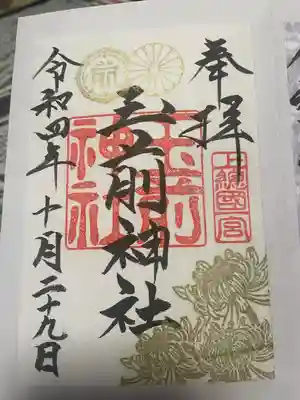 奉拝
上総国一宮
玉前神社
玉前神社
令和四年十月二十九日